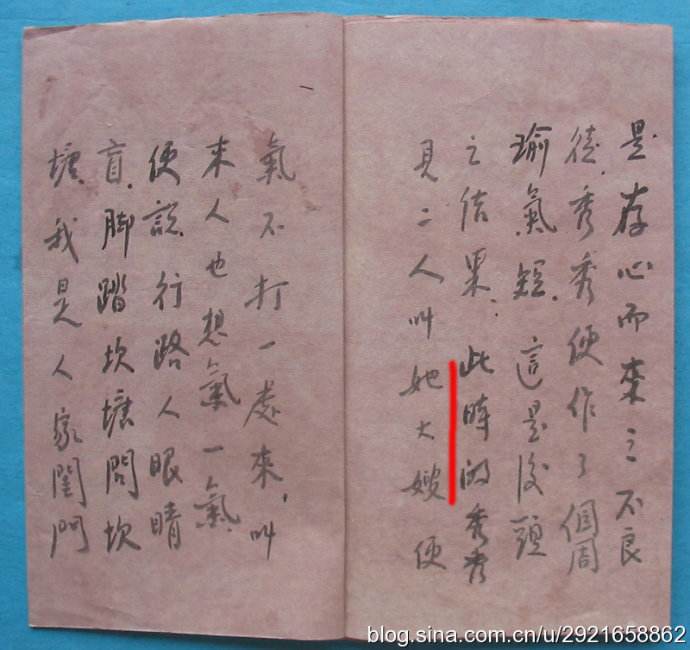 是存心而來之不良
後，秀秀便作了個周
瑜氣短，這是後頭
之结果，此時的秀秀
見二人叫她大嫂便
氣不打一處來，叫
來人也想氣一氣，
便說，行路人眼睛
盲，脚踏坎壙問坎
壙，我是人家閨門
blog.sina.com.cn/u/2921658862